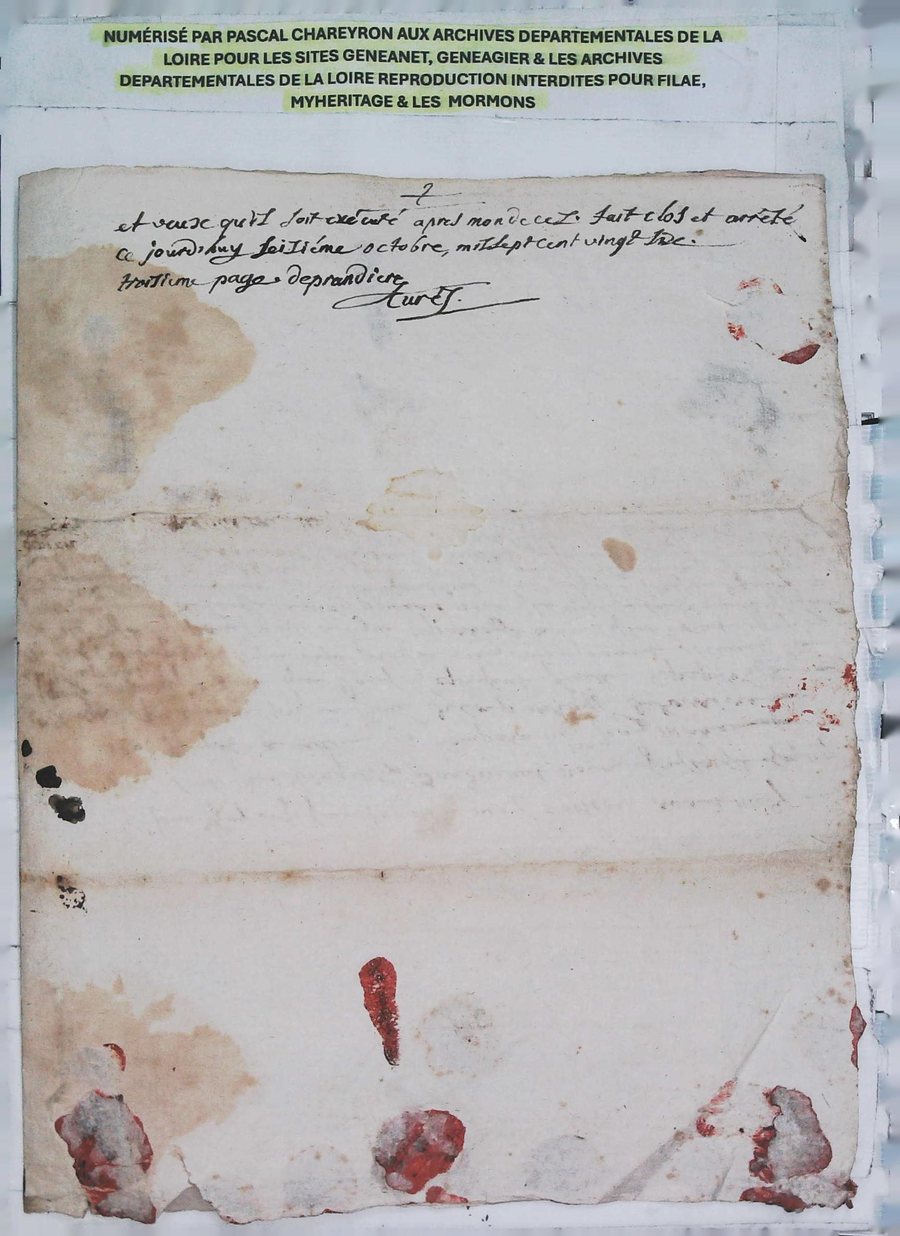 NUMÉRISÉ PAR PASCAL CHAREYRON AUX ARCHIVES DEPARTEMENTALES DE LA
LOIRE POUR LES SITES GENEANET, GENEAGIER & LES ARCHIVES
DEPARTEMENTALES DE LA LOIRE REPRODUCTION INTERDITES POUR FILAE,
MYHERITAGE & LES MORMONS
et veux qu'il soit exécuté apres mon deces. fait clos et arrêté
ce jourd'huy seiziéme octobre, mil sept cent vingt
troisieme page. deprandiere